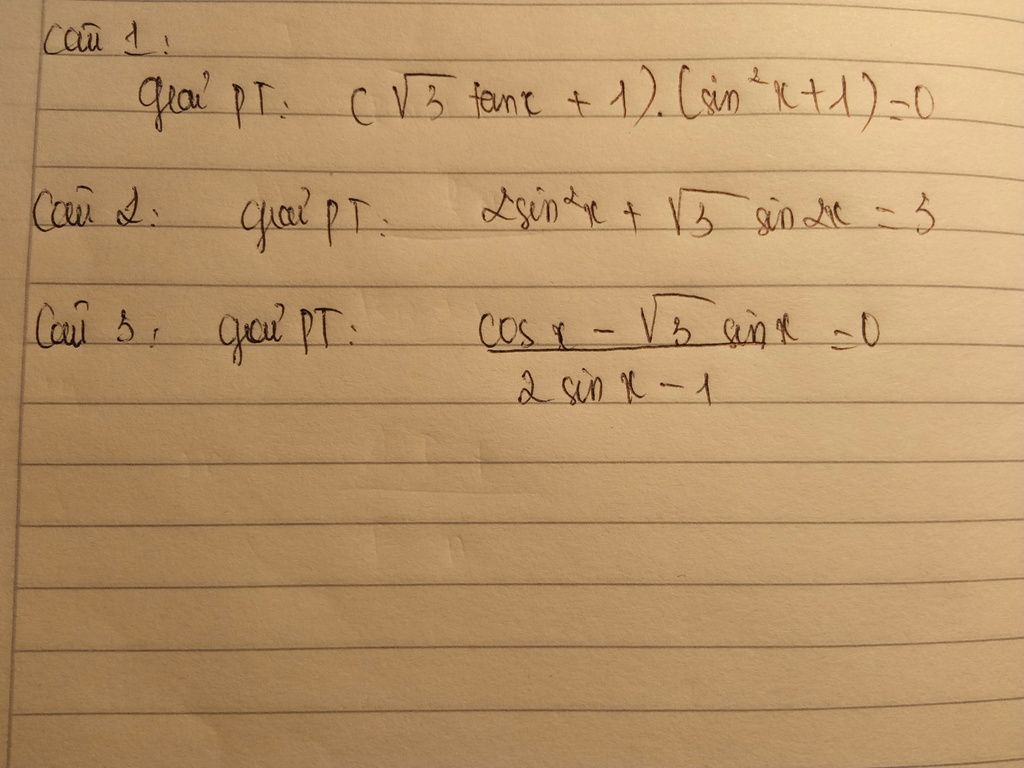 Câu 1:
Giải PT: (√3 tanx + 1).(sin²x+1)=0
Câu 2: Giải PT: 2sin²x + √3 sin2x = 3
Câu 3: Giải PT: cos x - √3 sinx =0
2 sin x - 1